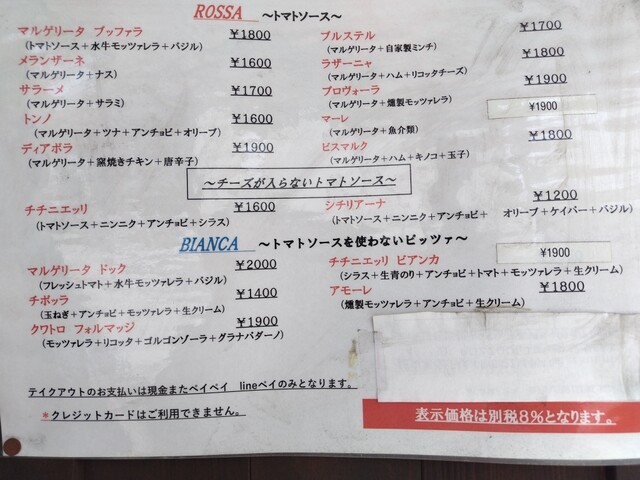 ROSSA ～トマトソース～
マルゲリータ ブッファラ ¥1800
(トマトソース＋水牛モッツァレラ＋バジル)
メランザーネ ¥1600
(マルゲリータ＋ナス)
サラーメ ¥1700
(マルゲリータ＋サラミ)
トンノ ¥1600
(マルゲリータ＋ツナ＋アンチョビ＋オリーブ)
ディアボラ ¥1900
(マルゲリータ＋窯焼きチキン＋唐辛子)
ブルステル ¥1700
(マルゲリータ＋自家製ミンチ)
ラザーニャ ¥1800
(マルゲリータ＋ハム＋リコッタチーズ)
プロヴォーラ ¥1900
(マルゲリータ＋燻製モッツァレラ)
マーレ ¥1900
(マルゲリータ＋魚介類)
ビスマルク ¥1800
(マルゲリータ＋ハム＋キノコ＋玉子)
～チーズが入らないトマトソース～
チチニエッリ ¥1600
(トマトソース＋ニンニク＋アンチョビ＋シラス)
シチリアーナ ¥1200
(トマトソース＋ニンニク＋アンチョビ＋ オリーブ＋ケイパー＋バジル)
BIANCA ～トマトソースを使わないピッツァ～
マルゲリータ ドック ¥2000
(フレッシュトマト＋水牛モッツァレラ＋バジル)
チポッラ ¥1400
(玉ねぎ＋アンチョビ＋モッツァレラ＋生クリーム)
クワトロ フォルマッジ ¥1900
(モッツァレラ＋リコッタ＋ゴルゴンゾーラ＋グラナパダーノ)
チチニエッリ ビアンカ ¥1900
(シラス＋生青のり＋アンチョビ＋トマト＋モッツァレラ＋生クリーム)
アモーレ ¥1800
(燻製モッツァレラ＋アンチョビ＋生クリーム)
テイクアウトのお支払いは現金またペイペイ lineペイのみとなります。
＊クレジットカードはご利用できません。
表示価格は別税8％となります。